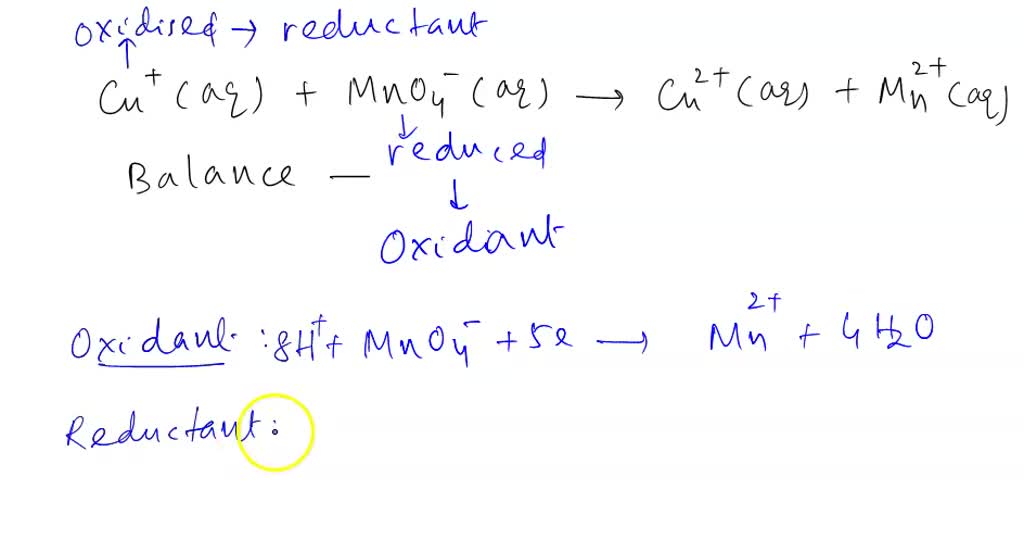 oxidised → reductant
Cu⁺(aq) + MnO₄⁻(aq) → Cu²⁺(aq) + Mn²⁺(aq)
reduced
Balance —
Oxidant
Oxidant : 8H⁺ + MnO₄⁻ + 5e → Mn²⁺ + 4H₂O
Reductant :